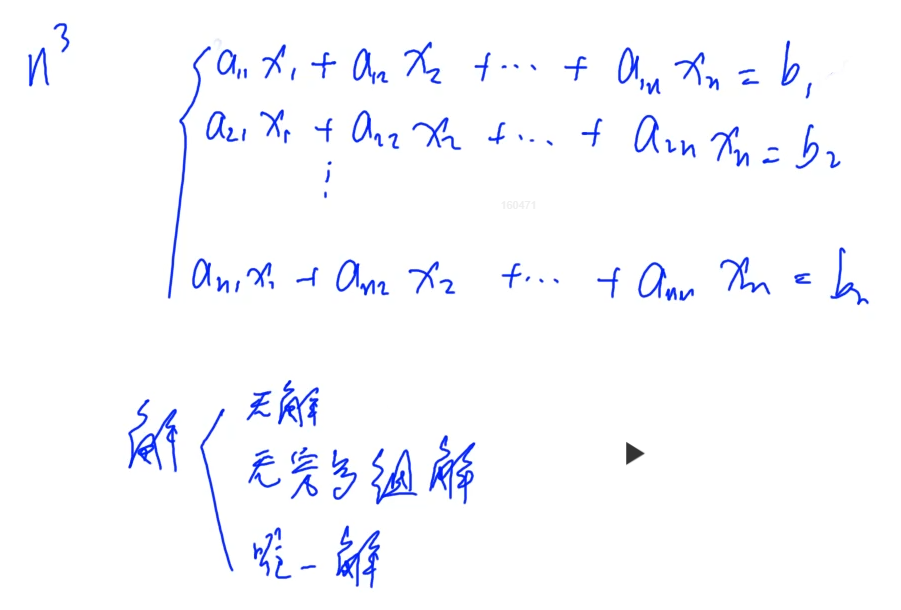 n³
a₁₁ x₁ + a₁₂ x₂ + ⋯ + a₁ₙ xₙ = b₁
a₂₁ x₁ + a₂₂ x₂ + ⋯ + a₂ₙ xₙ = b₂
⋮
160471
aₙ₁ x₁ + aₙ₂ x₂ + ⋯ + aₙₙ xₙ = bₙ
解
无解
无穷多组解
唯一解